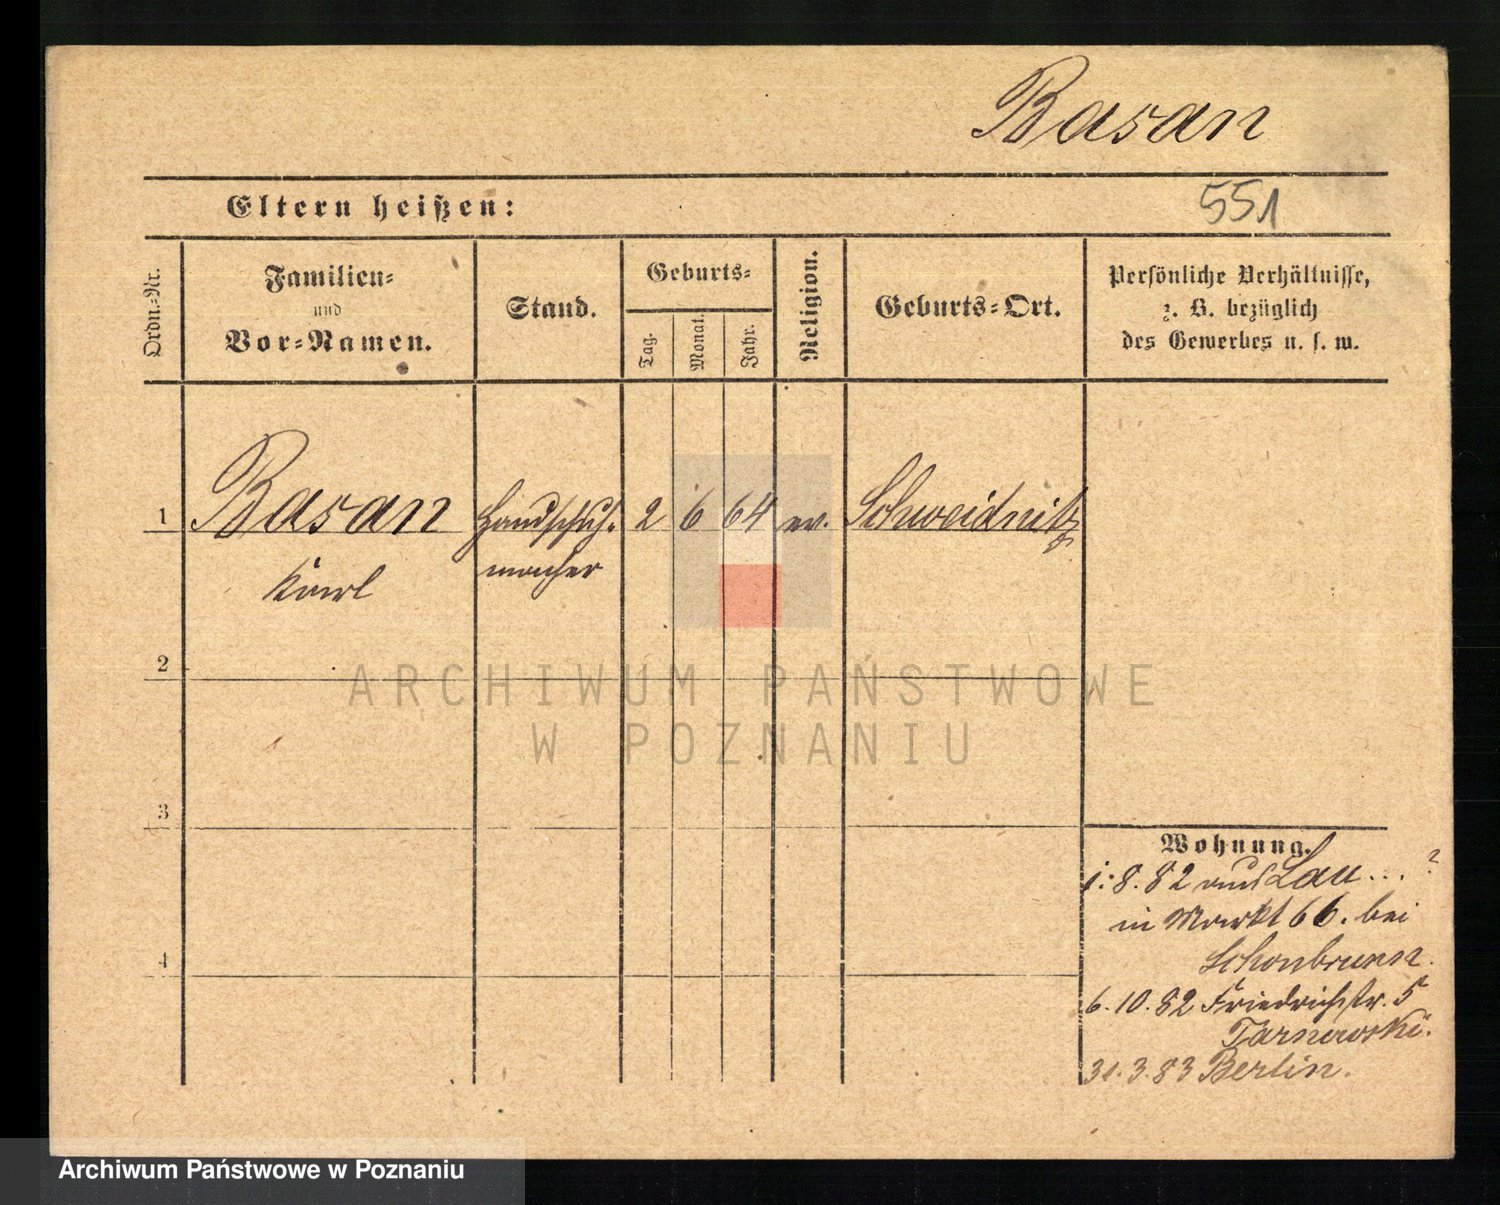 Basan
Eltern heißen:
551
Ordn.-Nr.
Familien-
und
Vor-Namen.
Stand.
Geburts-
Tag.
Monat.
Jahr.
Religion.
Geburts-Ort.
Persönliche Verhältnisse,
z. B. bezüglich
des Gewerbes u. s. w.
1 Basan Handschuh- 2 6 64 ev. Schweidnitz
Karl macher
2
ARCHIWUM PAŃSTWOWE
W POZNANIU
3
4
Wohnung.
1. 8. 82 aus Lau...?
in Markt 66. bei
Schonbrunn.
6. 10. 82 Friedrichstr. 5
Tarnowski.
31. 3. 83 Berlin.
Archiwum Państwowe w Poznaniu